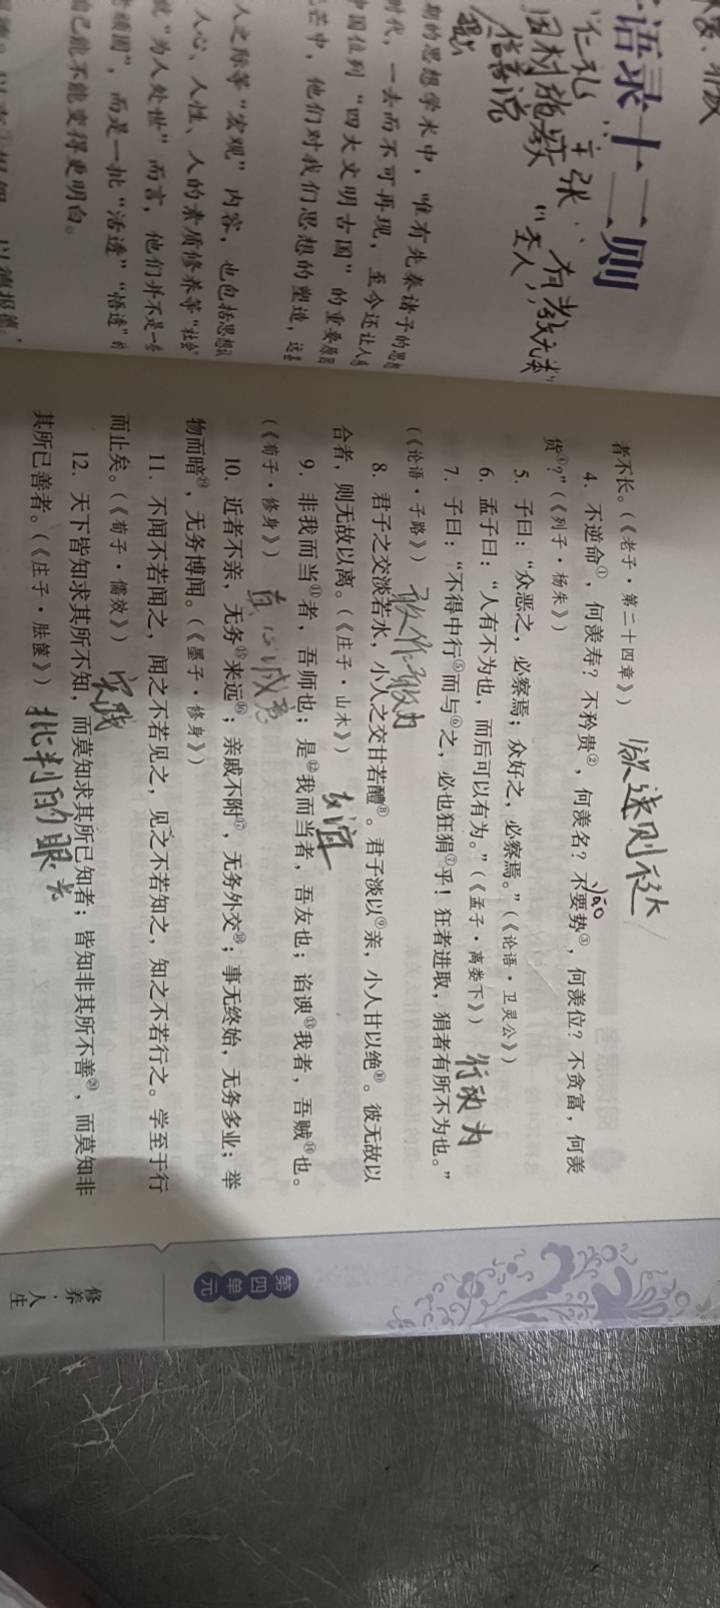 语录十二则
"仁礼"主张"有教无类"
因材施教
期的思想学术中，唯有先秦诸子的思想
时代，一去而不可再现，至今还让人
中国位列"四大文明古国"的重要原因
芒中，他们对我们思想的塑造，远
人之际等"宏观"内容，也包括思想
人心、人性、人的素质修养等"社会
"为人处世"而言，他们并不是一
"顽固"，而是一批"活透""悟透"的
自己能不能变得更明白。
以德报德
者不长。（《老子·第二十四章》）
欲速则不达
4. 不逆命①，何羡寿？不矜贵②，何羡名？不要势③，何羡位？不贪富，何羡
yāo
货④？"（《列子·杨朱》）
5. 子曰："众恶之，必察焉；众好之，必察焉。"（《论语·卫灵公》）
6. 孟子曰："人有不为也，而后可以有为。"（《孟子·离娄下》）
行动 为
7. 子曰："不得中行⑤而与⑥之，必也狂狷⑦乎！狂者进取，狷者有所不为也。"
（《论语·子路》）
敢作敢为
8. 君子之交淡若水，小人之交甘若醴⑧。君子淡以⑨亲，小人甘以绝⑩。彼无故以
合者，则无故以离。（《庄子·山木》）
友谊
9. 非我而当⑪者，吾师也；是⑫我而当者，吾友也；谄谀⑬我者，吾贼⑭也。
（《荀子·修身》）
10. 近者不亲，无务⑮来远⑯；亲戚不附⑰，无务外交⑱；事无终始，无务多业；举
物而暗⑲，无务博闻。（《墨子·修身》）
11. 不闻不若闻之，闻之不若见之，见之不若知之，知之不若行之。学至于行
而止矣。（《荀子·儒效》）
实践
12. 天下皆知求其所不知，而莫知求其所已知者；皆知非其所不善⑳，而莫知非
其所已善者。（《庄子·胠箧》）
批判的眼光
第四单元
修养·人生